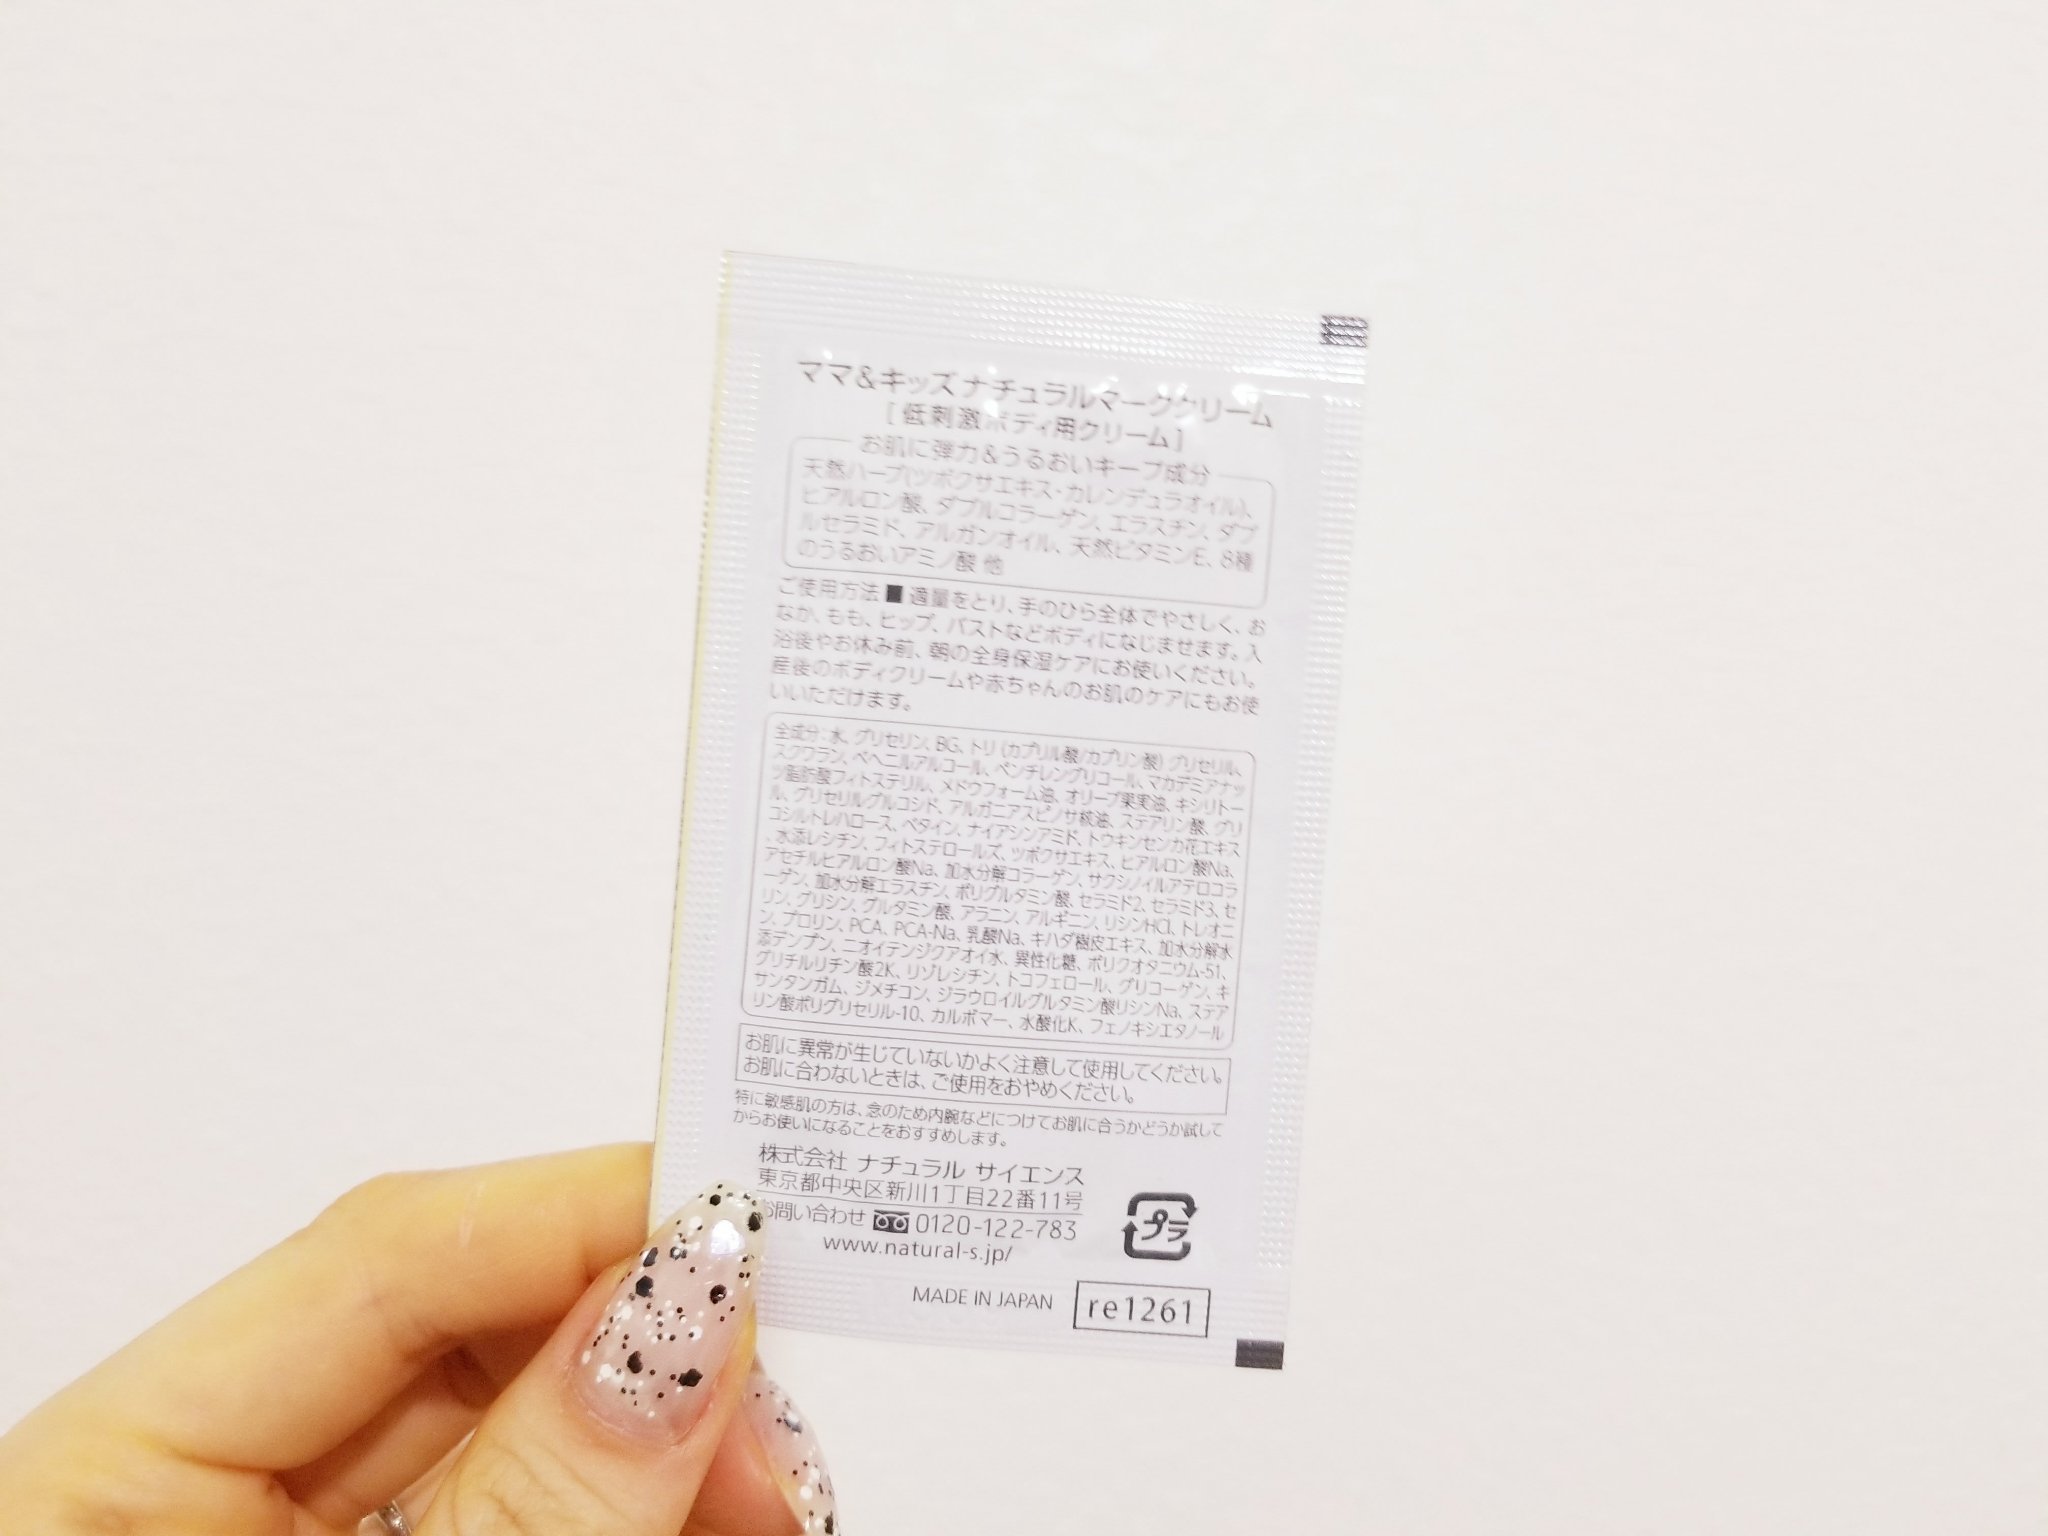 ママ&キッズ ナチュラルマーククリーム
[低刺激ボディ用クリーム]
お肌に弾力&うるおいキープ成分
天然ハーブ(ツボクサエキス・カレンデュラオイル)、
ヒアルロン酸、ダブルコラーゲン、エラスチン、ダブ
ルセラミド、アルガンオイル、天然ビタミンE、8種
のうるおいアミノ酸 他
ご使用方法 ■ 適量をとり、手のひら全体でやさしく、お
なか、もも、ヒップ、バストなどボディになじませます。入
浴後やお休み前、朝の全身保湿ケアにお使いください。
産後のボディクリームや赤ちゃんのお肌のケアにもお使
いいただけます。
全成分:水、グリセリン、BG、トリ(カプリル酸/カプリン酸)グリセリル、
スクワラン、ベヘニルアルコール、ペンチレングリコール、マカデミアナッ
ツ脂肪酸フィトステリル、メドウフォーム油、オリーブ果実油、キシリトー
ル、グリセリルグルコシド、アルガニアスピノサ核油、ステアリン酸、グリ
コシルトレハロース、ベタイン、ナイアシンアミド、トウキンセンカ花エキス
、水添レシチン、フィトステロールズ、ツボクサエキス、ヒアルロン酸Na、
アセチルヒアルロン酸Na、加水分解コラーゲン、サクシノイルアテロコラ
ーゲン、加水分解エラスチン、ポリグルタミン酸、セラミド2、セラミド3、セ
リン、グリシン、グルタミン酸、アラニン、アルギニン、リシンHCl、トレオニ
ン、プロリン、PCA、PCA-Na、乳酸Na、キハダ樹皮エキス、加水分解水
添デンプン、ニオイテンジクアオイ水、異性化糖、ポリクオタニウム-51、
グリチルリチン酸2K、リゾレシチン、トコフェロール、グリコーゲン、キ
サンタンガム、ジメチコン、ジラウロイルグルタミン酸リシンNa、ステア
リン酸ポリグリセリル-10、カルボマー、水酸化K、フェノキシエタノール
お肌に異常が生じていないかよく注意して使用してください。
お肌に合わないときは、ご使用をおやめください。
特に敏感肌の方は、念のため内腕などにつけてお肌に合うかどうか試して
からお使いになることをおすすめします。
株式会社 ナチュラル サイエンス
東京都中央区新川1丁目22番11号
お問い合わせ 0120-122-783
www.natural-s.jp/
プラ
MADE IN JAPAN
re1261